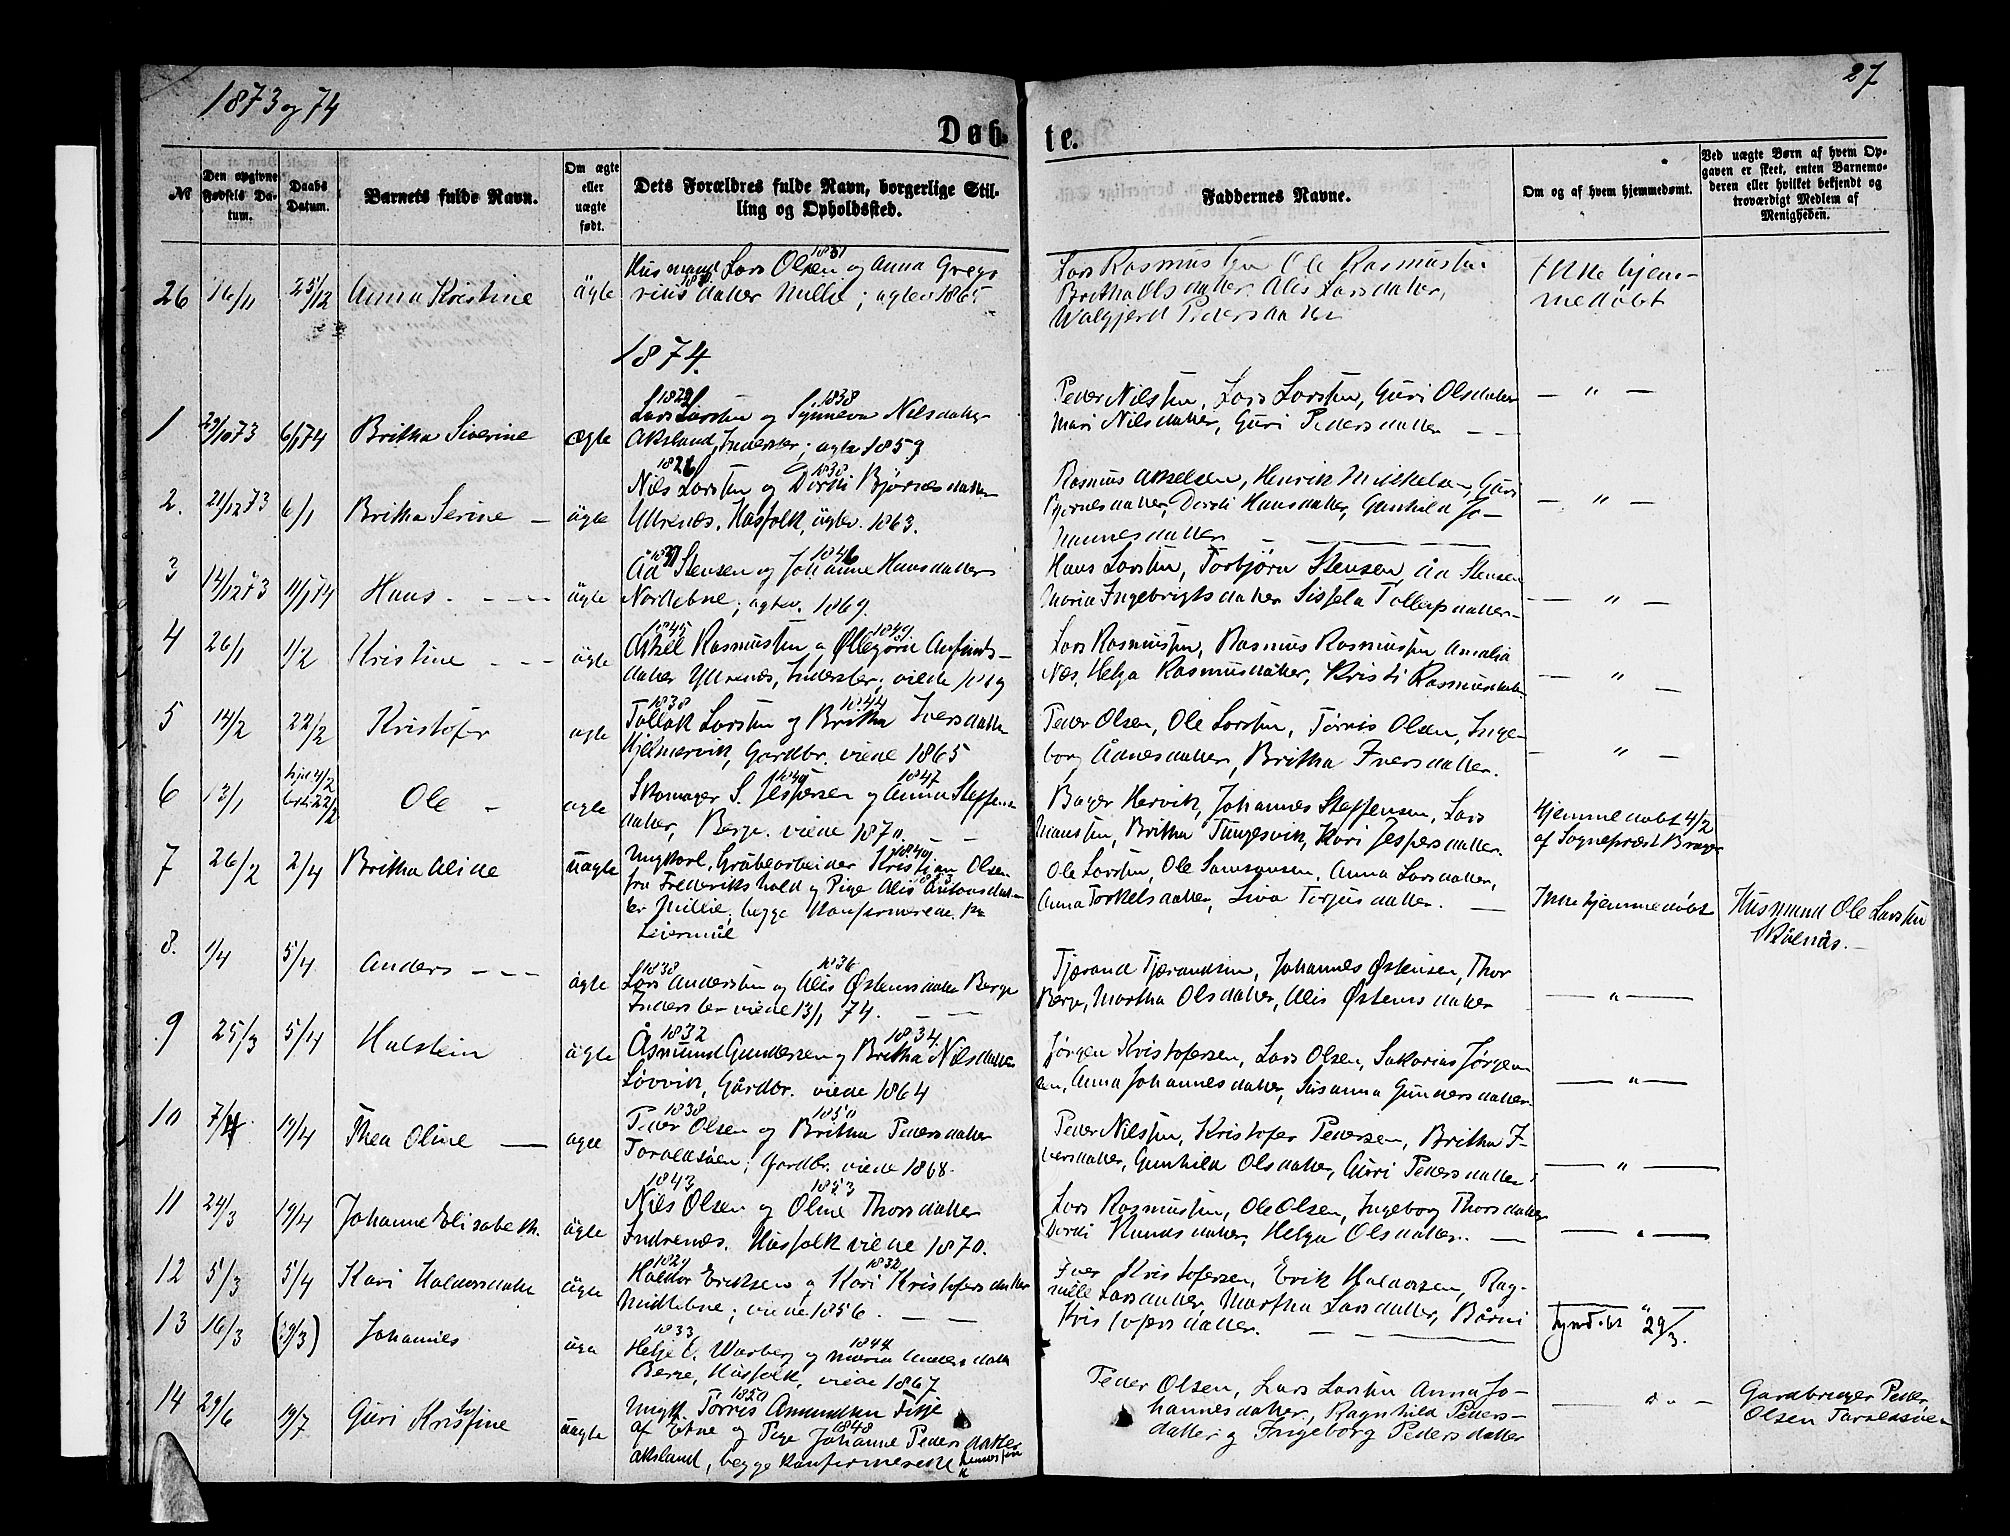 1873 og 74
27
Døb-
te.
№
Den opgivne Fødsels Datum.
Daabs Datum.
Barnets fulde Navn.
Om ægte eller uægte født.
Dets Forældres fulde Navn, borgerlige Stilling og Opholdssted.
Faddernes Navne.
Om og af hvem hjemmedøbt.
Ved uægte Børn af hvem Opgaven er skeet, enten Barnemoderen eller hvilket bekjendt og troværdigt Medlem af Menigheden.
26 16/11 25/12 Anna Kristine ägte
Husmand Lars Olsen og Anna Gregoriusdatter Millie; ägtev 1865
Lars Rasmussen Ole Rasmussen
Britha Olsdatter Alis Larsdatter,
Walgjerd Pedersdatter
Ikke hjemmedøbt
1874.
1 29/10 73 6/1 74 Britha Siverine ægte
1829 1838
Lars Larsen og Synneva Nilsdatter
Aksland, Inderster; ægtev 1859
Peder Nilssen, Lars Larsen, Guri Olsdatter
Mari Nilsdatter, Guri Pedersdatter
— " —
2. 21/12 73 6/1 Britha Serine ägte
1826 1838
Nils Larsen og Dordi Bjørnesdatter
Yttrenæs. Husfolk, ägtev. 1863.
Rasmus Akselsen, Henrik Mikkelsen, Guri
Bjørnesdatter, Dordi Hansdatter, Gunhild Johannesdatter
— " —
3 14/12 73 11/1 74 Hans ägte
1846
Åd Stensen og Johanne Hansdatter
Nordtebne; ägtev. 1869.
Hans Larsen, Torbjørn Stensen, Åd Stensen
Maria Ingebrigtsdatter Sissela Tollefsdatter
— " —
4 26/1 1/2 Kristine ägte
1845 1849
Askel Rasmussen og Øllegørd Anfindsdatter Yttrenæs, Inderster; viede
Lars Rasmussen, Rasmus Rasmussen Amalia
Næs, Helga Rasmusdatter, Kristi Rasmusdatter
— " —
5 14/2 22/2 Kristofer ägte
1838 1844
Tollak Larsen og Britha Iversdatter
Hjelmervik, Gardbr. viede 1865
Peder Olsen, Ole Larsen, Tørris Olsen, Ingeborg Ådnesdatter, Britha Iversdatter.
— " —
6 13/1 hjd 4/2 22/2 Ole ägte
1847
Skomager S. Jespersen og Anna Steffensdatter, Berge. viede 1870
Bager Hervik, Johannes Steffensen, Lars
Monssen, Britha Tungesvik, Kari Jespersdatter.
Hjemmedøbt 4/2
af Sogneprest Brage
7 26/2 2/4 Britha Aline uägte
Ungkarl, Grubearbeider Kristian Olsen
fra Frederikshald og Pige Alis Antonsdatter Millie, begge Konfirmerede.
Ole Larsen, Ole Samsonsen, Anna Larsdatter,
Anna Torkelsdatter, Siva Torjusdatter.
Ikke hjemmedøbt
Husmand Ole Larsen
8. 1/4 5/4 Anders ägte
1838 1836
Lars Anderssen og Alis Østensdatter Berge
Inderster viede 13/1 74.
Tjærand Tjærandsen, Johannes Østensen, Thor
Berge, Martha Olsdatter, Alis Østensdatter
— " —
9 25/3 5/4 Halstein ägte
1832 1834.
Åsmund Gundersen og Britha Nilsdatter
Løvvik, Gårdbr. viede 1864
Jørgen Kristofersen, Lars Olsen, Sakarias Jørgensen, Anna Johannesdatter, Susanna Gundersdatter.
— " —
10 7/4 19/4 Thea Oline ägte
1838 1850
Peder Olsen og Britha Pedersdatter
Taraldsøen; Gardbr. viede 1868.
Peder Nilssen, Kristofer Pedersen, Britha Iversdatter, Gunhild Olsdatter, Guri Pedersdatter
— " —
11 24/3 19/4 Johanne Elisabeth. ägte
1843 1853
Nils Olsen og Oline Thorsdatter
Indrenæs. Husfolk viede 1870.
Lars Rasmussen, Ole Olsen, Ingeborg Thorsdatter
Dordi Knudsdatter, Helga Olsdatter.
— " —
12 5/3 5/4 Kari Haldorsdatter ägte
1829 1832
Haldor Eriksen og Kari Kristofersdatter
Midtebne; viede 1856.
Iver Kristofersen, Erik Haldorsen, Ragnille Larsdatter, Martha Larsdatter, Bårni
Kristofersdatter.
— " —
13 16/3 (29/3) Johannes
1833 1844
Helje O. Warberg og Maria Andersdatter
Berge, Husfolk, viede 1867
29/3.
14 29/6 19/7 Guri Kristine uägte
1850
Ungk. Tørris Asmundsen Fitje
1848
af Etne og Pige Johanne Pedersdatter
Aksland, begge Konfirmerede
Peder Olsen, Lars Larsen Anna Johannesdatter, Ragnhild Pedersdatter og Ingeborg Pedersdatter
— " —
Gardbruger Peder
Olsen Taraldsøen